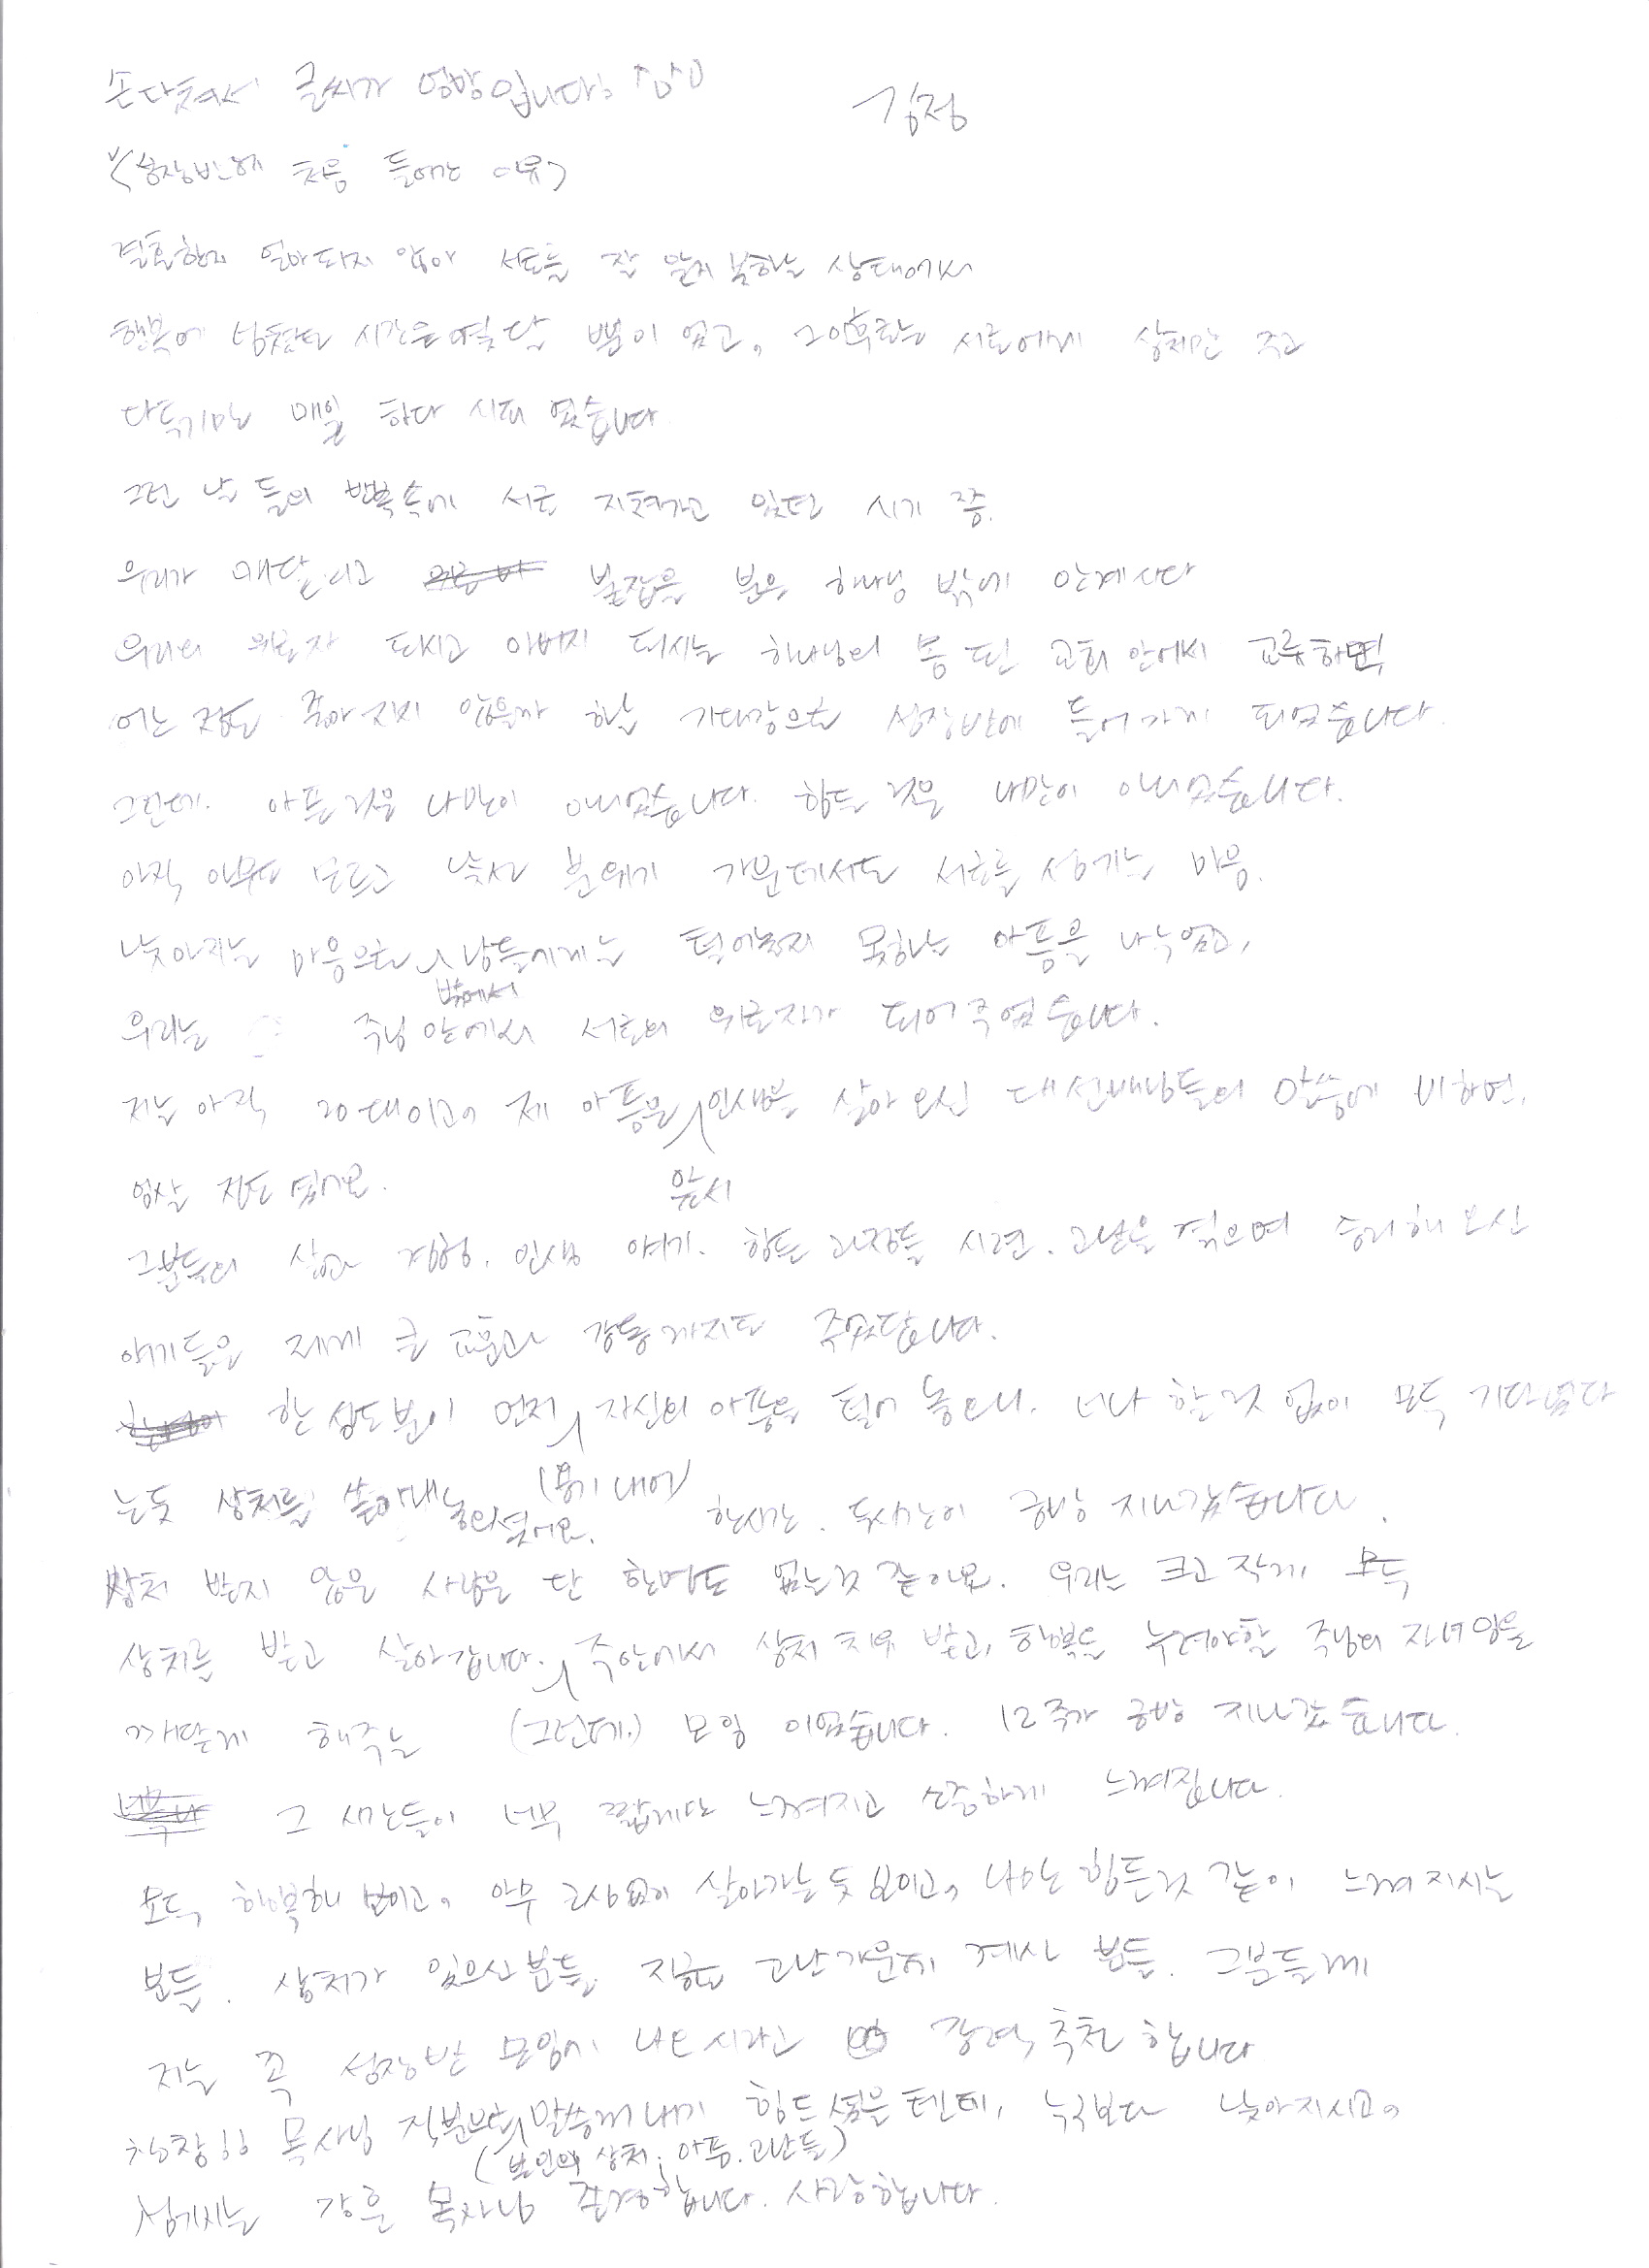 손 다쳐서 글씨가 엉망입니다
김정
<성장반에 처음 들어간 이유>
결혼한지 얼마되지 않아 서로를 잘 알지 못하는 상태에서
행복에 넘쳤던 시간은 몇달 뿐이 었고, 그이후로는 서로에게 상처만 주고
다독기만 매일 하다 시피 했습니다
그런 날 들의 반복속에 서로 지쳐가고 있던 시기 쯤.
우리가 매달리고 붙잡을 분은, 하나님 밖에 안계시다
우리의 위로자 되시고 아버지 되시는 하나님의 몸 된 교회 안에서 교류하면
어느 정도 좋아 지지 않을까 하는 기대감으로 성장반에 들어가게 되었습니다.
그런데. 아픈 것은 나만이 아니었습니다. 힘든 것은 나만이 아니었습니다.
아직 아무도 모르고 낯선 분위기 가운데서도 서로를 섬기는 마음.
낮아지는 마음으로 남들에게는 털어놓지 못하는 아픔을 나누었고,
밖에서
우리는 주님 안에서 서로의 위로자가 되어 주었습니다.
저는 아직 20대이고, 제 아픔은 인생을 살아 오신 대선배님들의 말씀에 비하면,
엄살 정도 였어요.
훨씬
그분들의 삶과 경험. 인생 얘기. 힘든 과정들 시련. 고난을 겪으며 승리해 오신
얘기들은 제게 큰 교훈과 감동까지도 주었답니다.
한 성도 분이 먼저 자신의 아픔을 털어 놓으니. 너나 할 것 없이 모두 기다렸다
(용기 내어)
는듯 상처를 쏟아내 놓으셨어요. 한시간. 두시간이 금방 지나갔습니다.
상처 받지 않은 사람은 단 한명도 없는것 같아요. 우리는 크고 작게, 모두
상처를 받고 살아갑니다. 주안에서 상처 치유 받고, 행복을 누려야할 주님의 자녀임을
깨닫게 해주는 (그런데.) 모임 이었습니다. 12주가 금방 지나갔습니다.
그 시간들이 너무 짧게만 느껴지고 소중하게 느껴집니다.
모두, 행복해 보이고, 아무 고생없이 살아가는 듯 보이고, 나만 힘든것 같이 느껴 지시는
분들. 상처가 있으신 분들, 지금도 고난 가운데 계신 분들. 그분들께
저는 꼭 성장반 모임에 나오시라고 강력 추천 합니다
목사님 직분으로 말씀꺼내기 힘드셨을 텐데, 누구보다 낮아지시고,
(본인의 상처, 아픔. 고난들)
섬기시는 강훈 목사님 존경합니다. 사랑합니다.